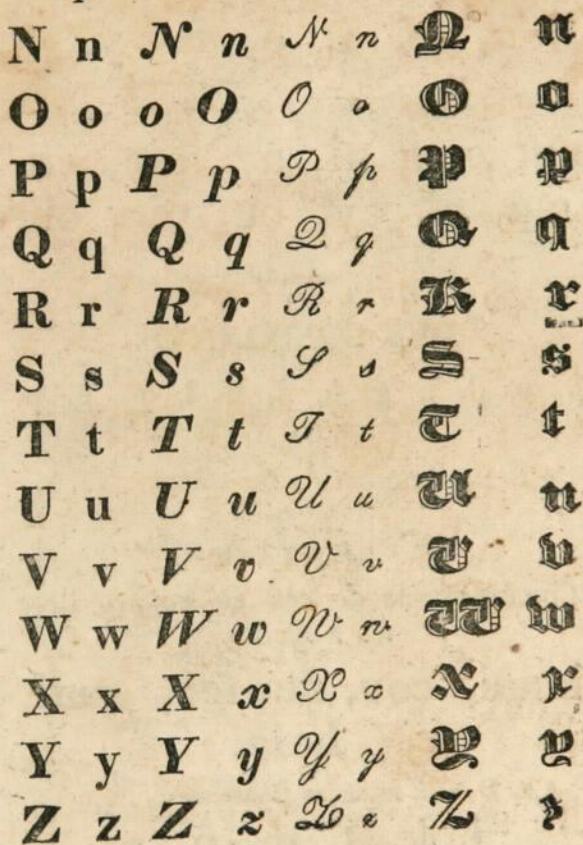 N n N n N n N n
O o o O O o O o
P p P p P p P p
Q q Q q Q q Q q
R r R r R r R r
S s S s S s S s
T t T t T t T t
U u U u U u U u
V v V v V v V v
W w W w W w W w
X x X x X x X x
Y y Y y Y y Y y
Z z Z z Z z Z z